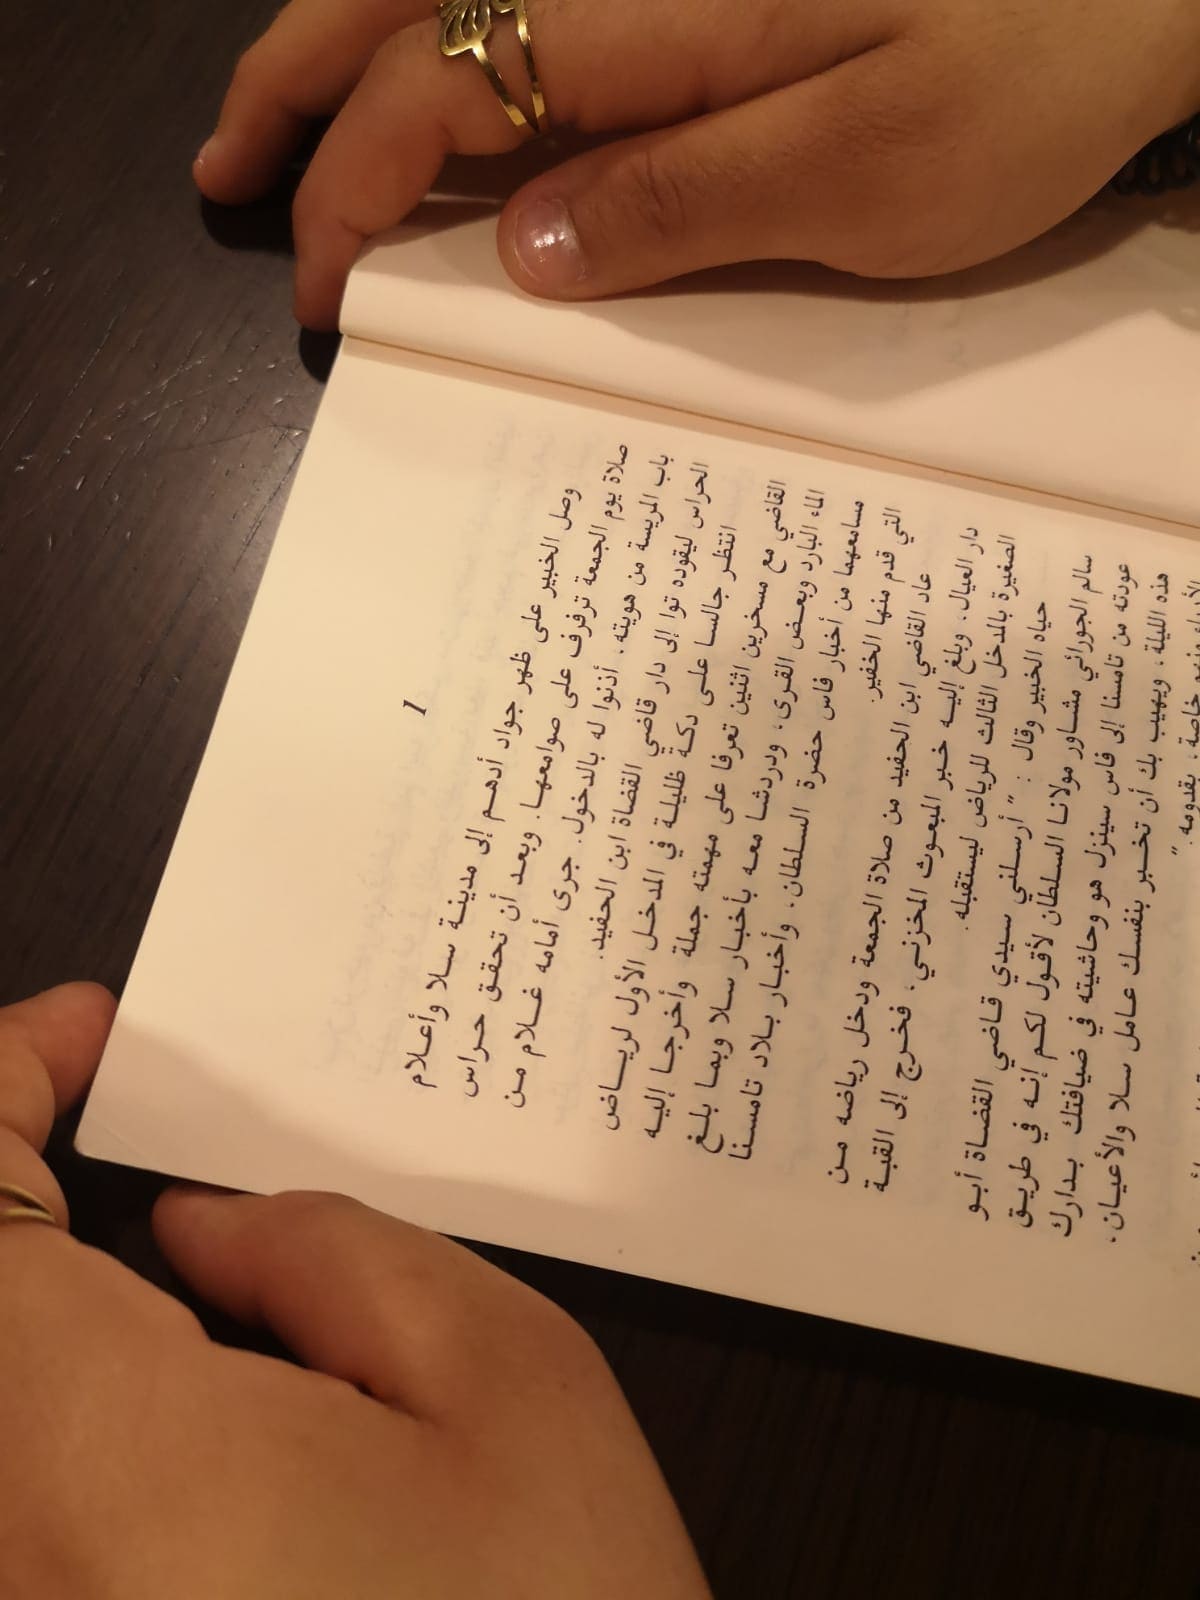 1
وصل الخبير على ظهر جواد أدهم إلى مدينة سلا وأعلام
صلاة يوم الجمعة ترفرف على صوامعها. وبعد أن تحقق حراس
باب المريسة من هويته، أذنوا له بالدخول. جرى أمامه غلام من
الحراس ليقوده توا إلى دار قاضي القضاة ابن الحفيد.
انتظر جالسا على دكة ظليلة في المدخل الأول لرياض
القاضي مع مسخرين اثنين تعرفا على مهمته جملة وأخرجا إليه
الماء البارد وبعض القرى، ودردشا معه بأخبار سلا وبما بلغ
مسامعهما من أخبار فاس حضرة السلطان، وأخبار بلاد تامسنا
التي قدم منها الخفير.
عاد القاضي ابن الحفيد من صلاة الجمعة ودخل رياضه من
دار العيال، وبلغ إليه خبر المبعوث المخزني، فخرج إلى القبة
الصغيرة بالمدخل الثالث للرياض ليستقبله.
حياه الخبير وقال : "أرسلني سيدي قاضي القضاة أبو
سالم الجورائي مشاور مولانا السلطان لأقول لكم إنه في طريق
عودته من تامسنا إلى فاس سينزل هو وحاشيته في ضيافتك بدارك
هذه الليلة، ويهيب بك أن تخبر بنفسك عامل سلا والأعيان،
خاصة، بقدومه."